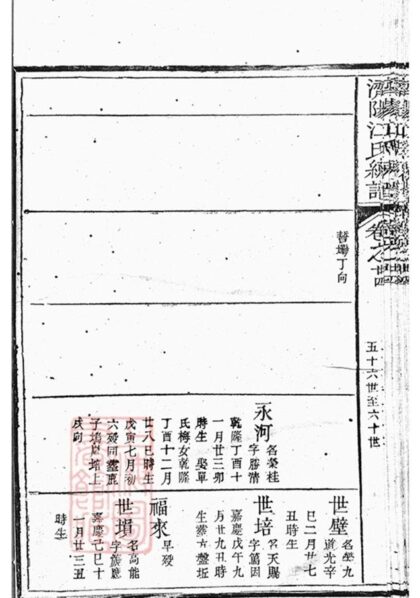 濟陽江氏統譜
卷之廿
五十六世至六十世
丁向
永河
名榮桂
字勝清
乾隆丁酉十
一月廿三卯
時生 娶單
氏梅女乾隆
丁酉十二月
廿八巳時生
戊寅七月初
六歿同葬鹿
戌向
世璧
名榮九
道光辛
巳二月廿七
丑時生
世培
名天賜
字篤因
嘉慶戊午九
月廿九丑時
生葬六盤坵
福來
早殁
世塤
名高能
嘉慶己巳十
一月廿三丑
時生